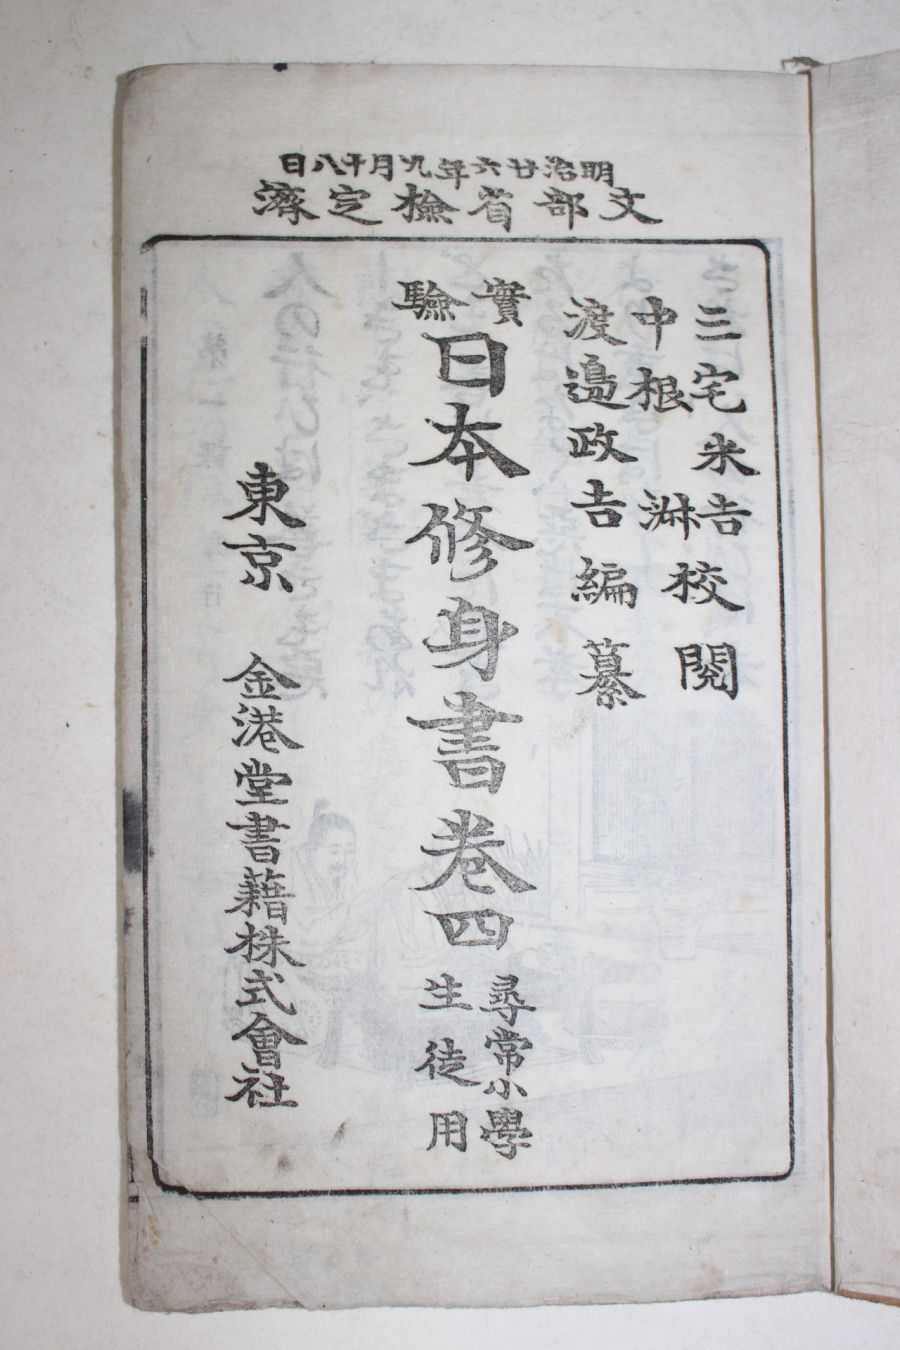 明治廿六年九月十八日
文部省檢定濟
三宅米吉
中根淑
校閱
渡邉政吉編纂
實驗
日本修身書卷四
尋常小學
生徒用
東京 金港堂書籍株式會社